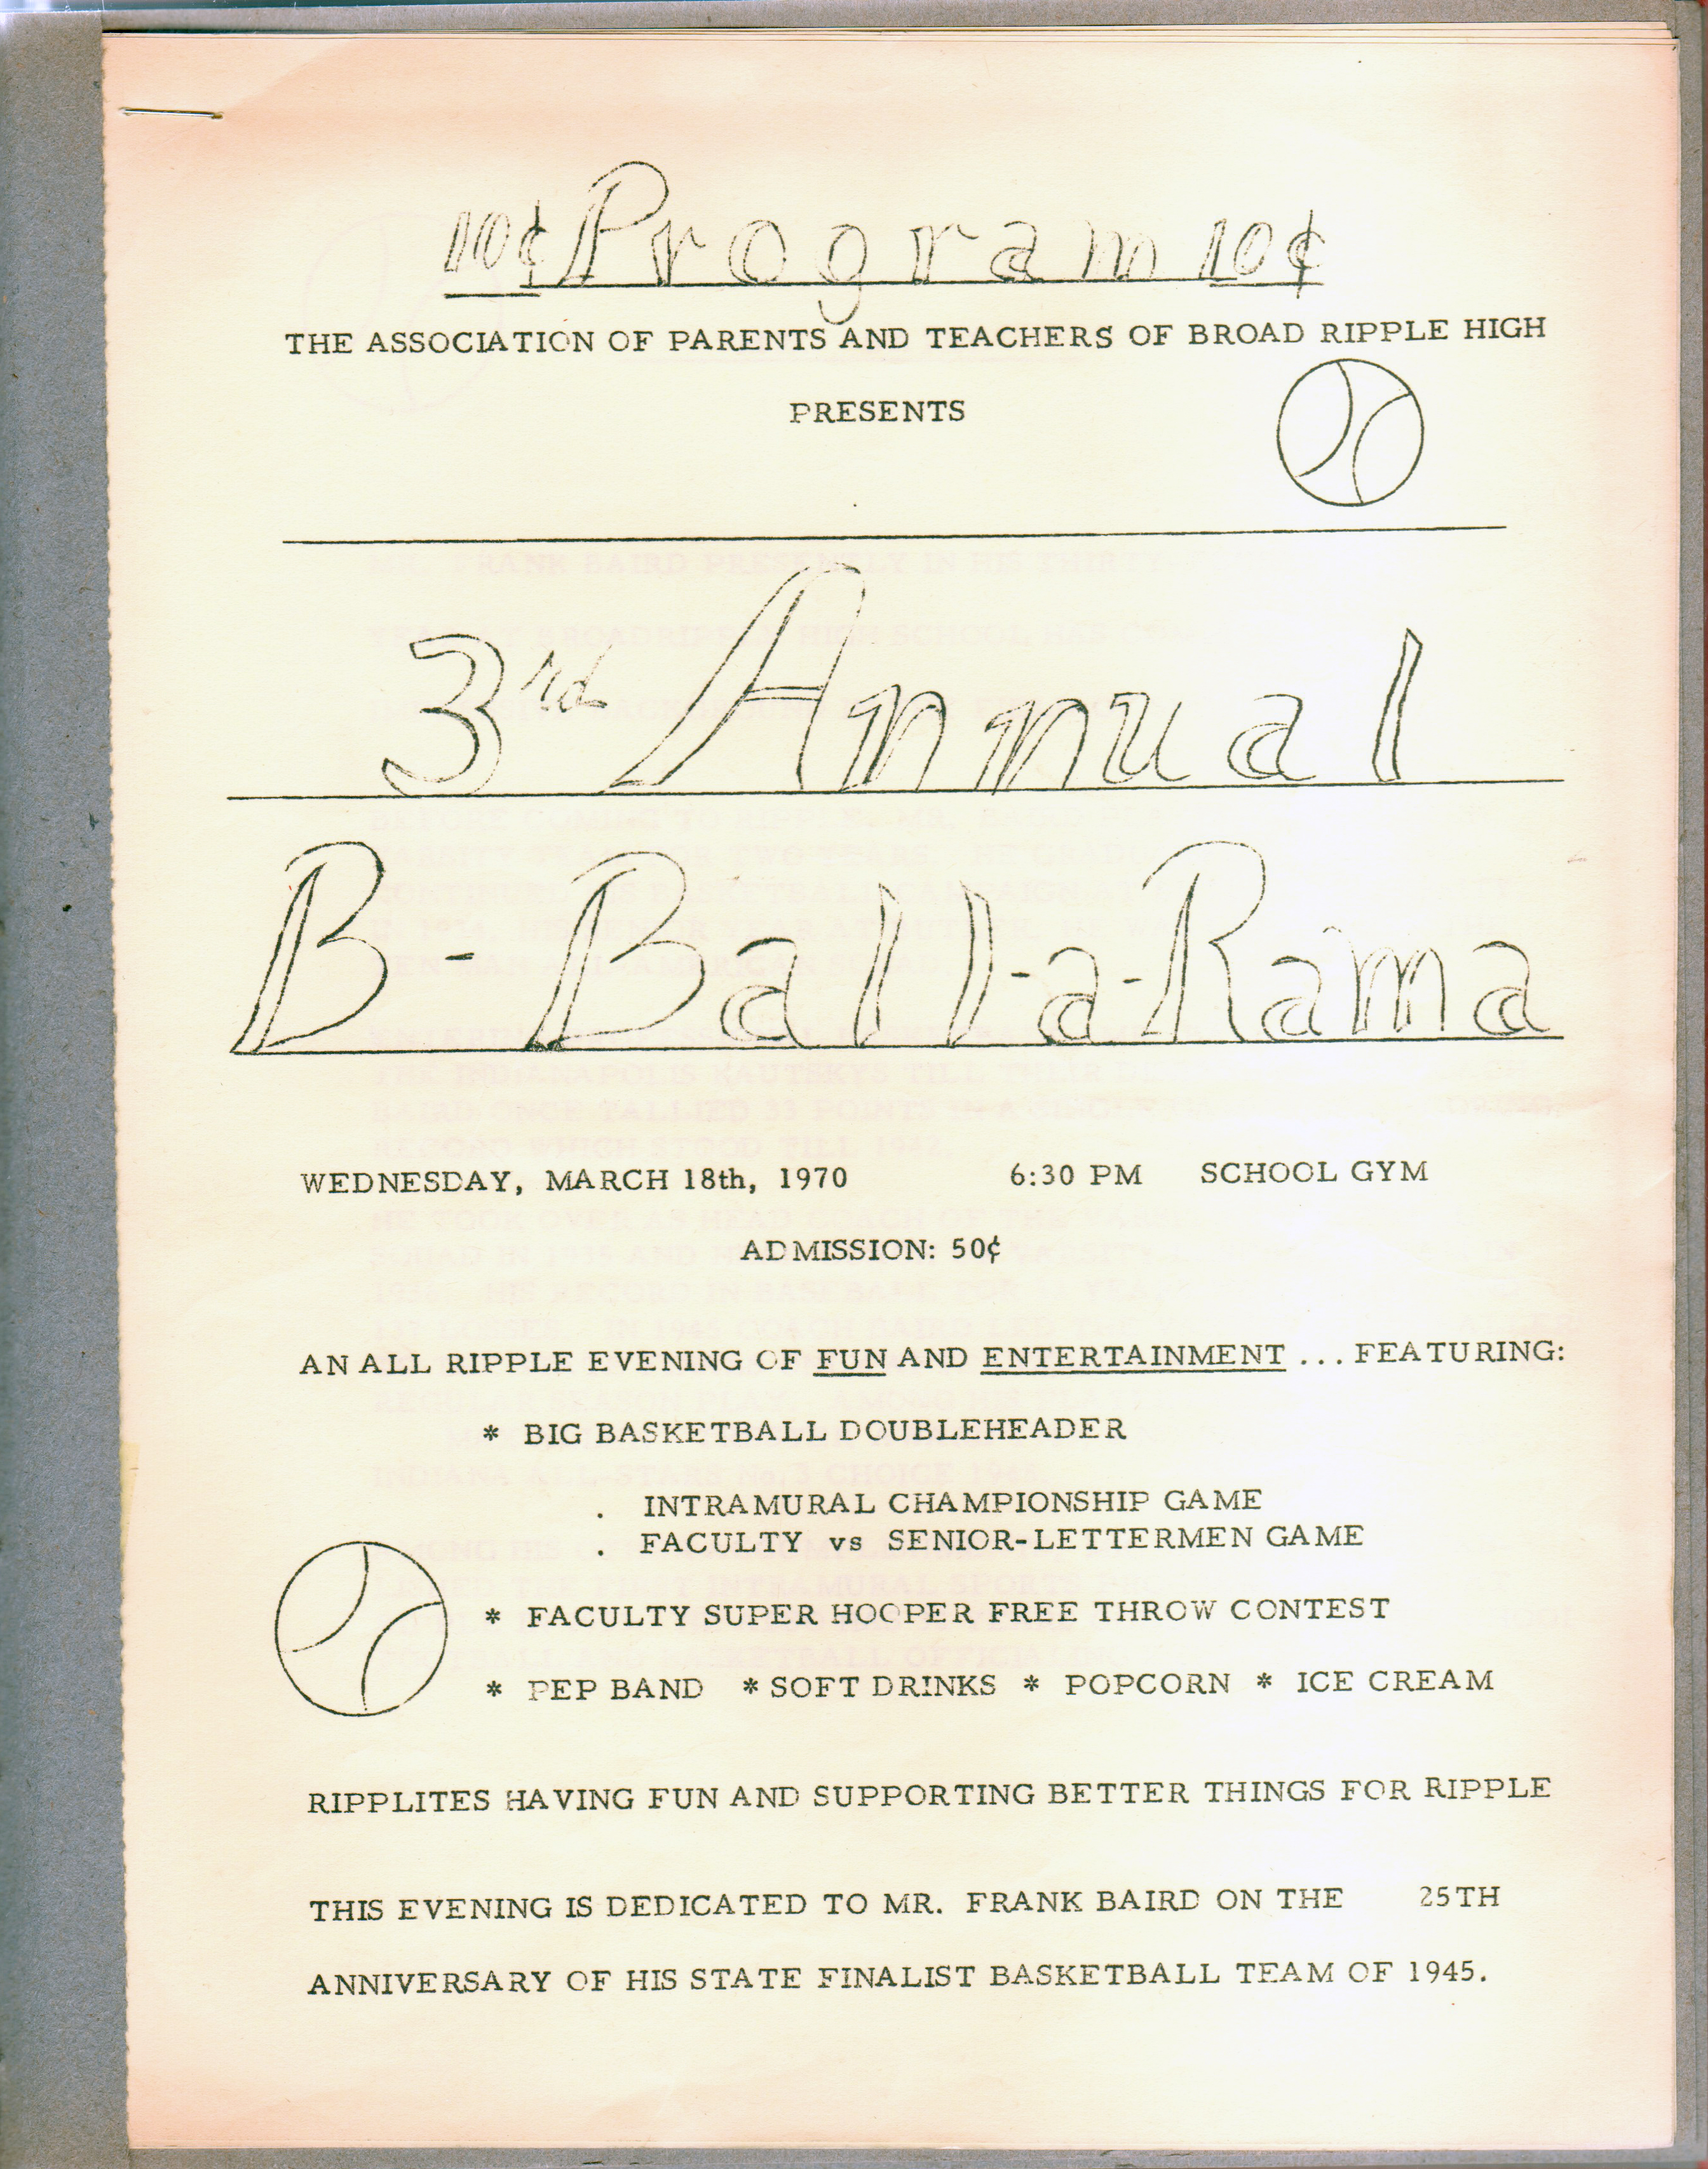 10¢ Program 10¢
THE ASSOCIATION OF PARENTS AND TEACHERS OF BROAD RIPPLE HIGH
PRESENTS
3rd Annual
B-Ball-a-Rama
WEDNESDAY, MARCH 18th, 1970 6:30 PM SCHOOL GYM
ADMISSION: 50¢
AN ALL RIPPLE EVENING OF FUN AND ENTERTAINMENT ... FEATURING:
* BIG BASKETBALL DOUBLEHEADER
. INTRAMURAL CHAMPIONSHIP GAME
. FACULTY vs SENIOR-LETTERMEN GAME
* FACULTY SUPER HOOPER FREE THROW CONTEST
* PEP BAND * SOFT DRINKS * POPCORN * ICE CREAM
RIPPLITES HAVING FUN AND SUPPORTING BETTER THINGS FOR RIPPLE
THIS EVENING IS DEDICATED TO MR. FRANK BAIRD ON THE 25TH
ANNIVERSARY OF HIS STATE FINALIST BASKETBALL TEAM OF 1945.